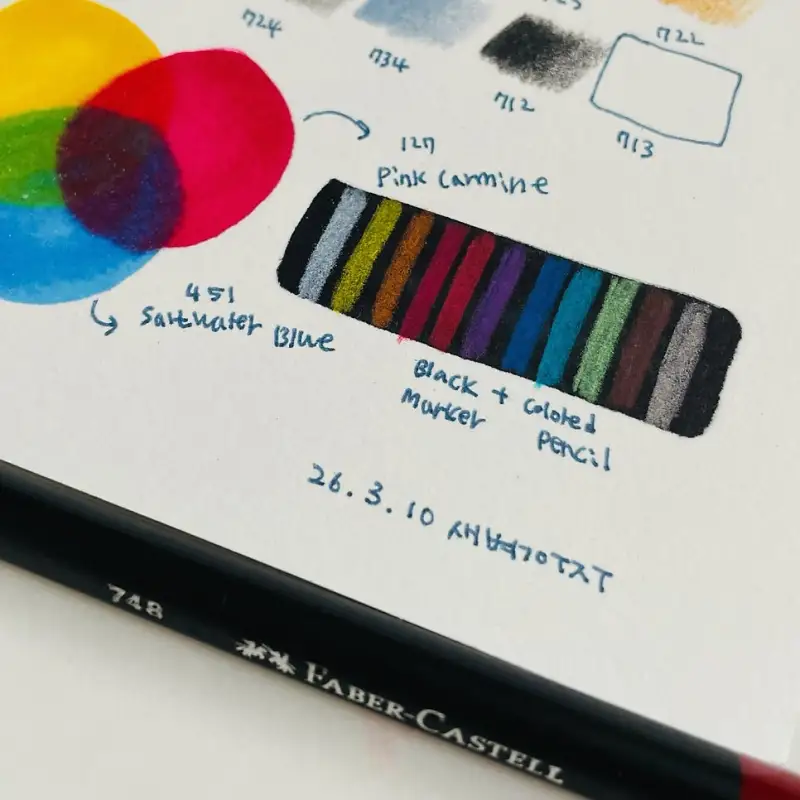 724
734
722
712
713
127
Pink Carmine
451
Saltwater Blue
Black + Colored
Marker Pencil
26.3.10
748 FABER-CASTELL